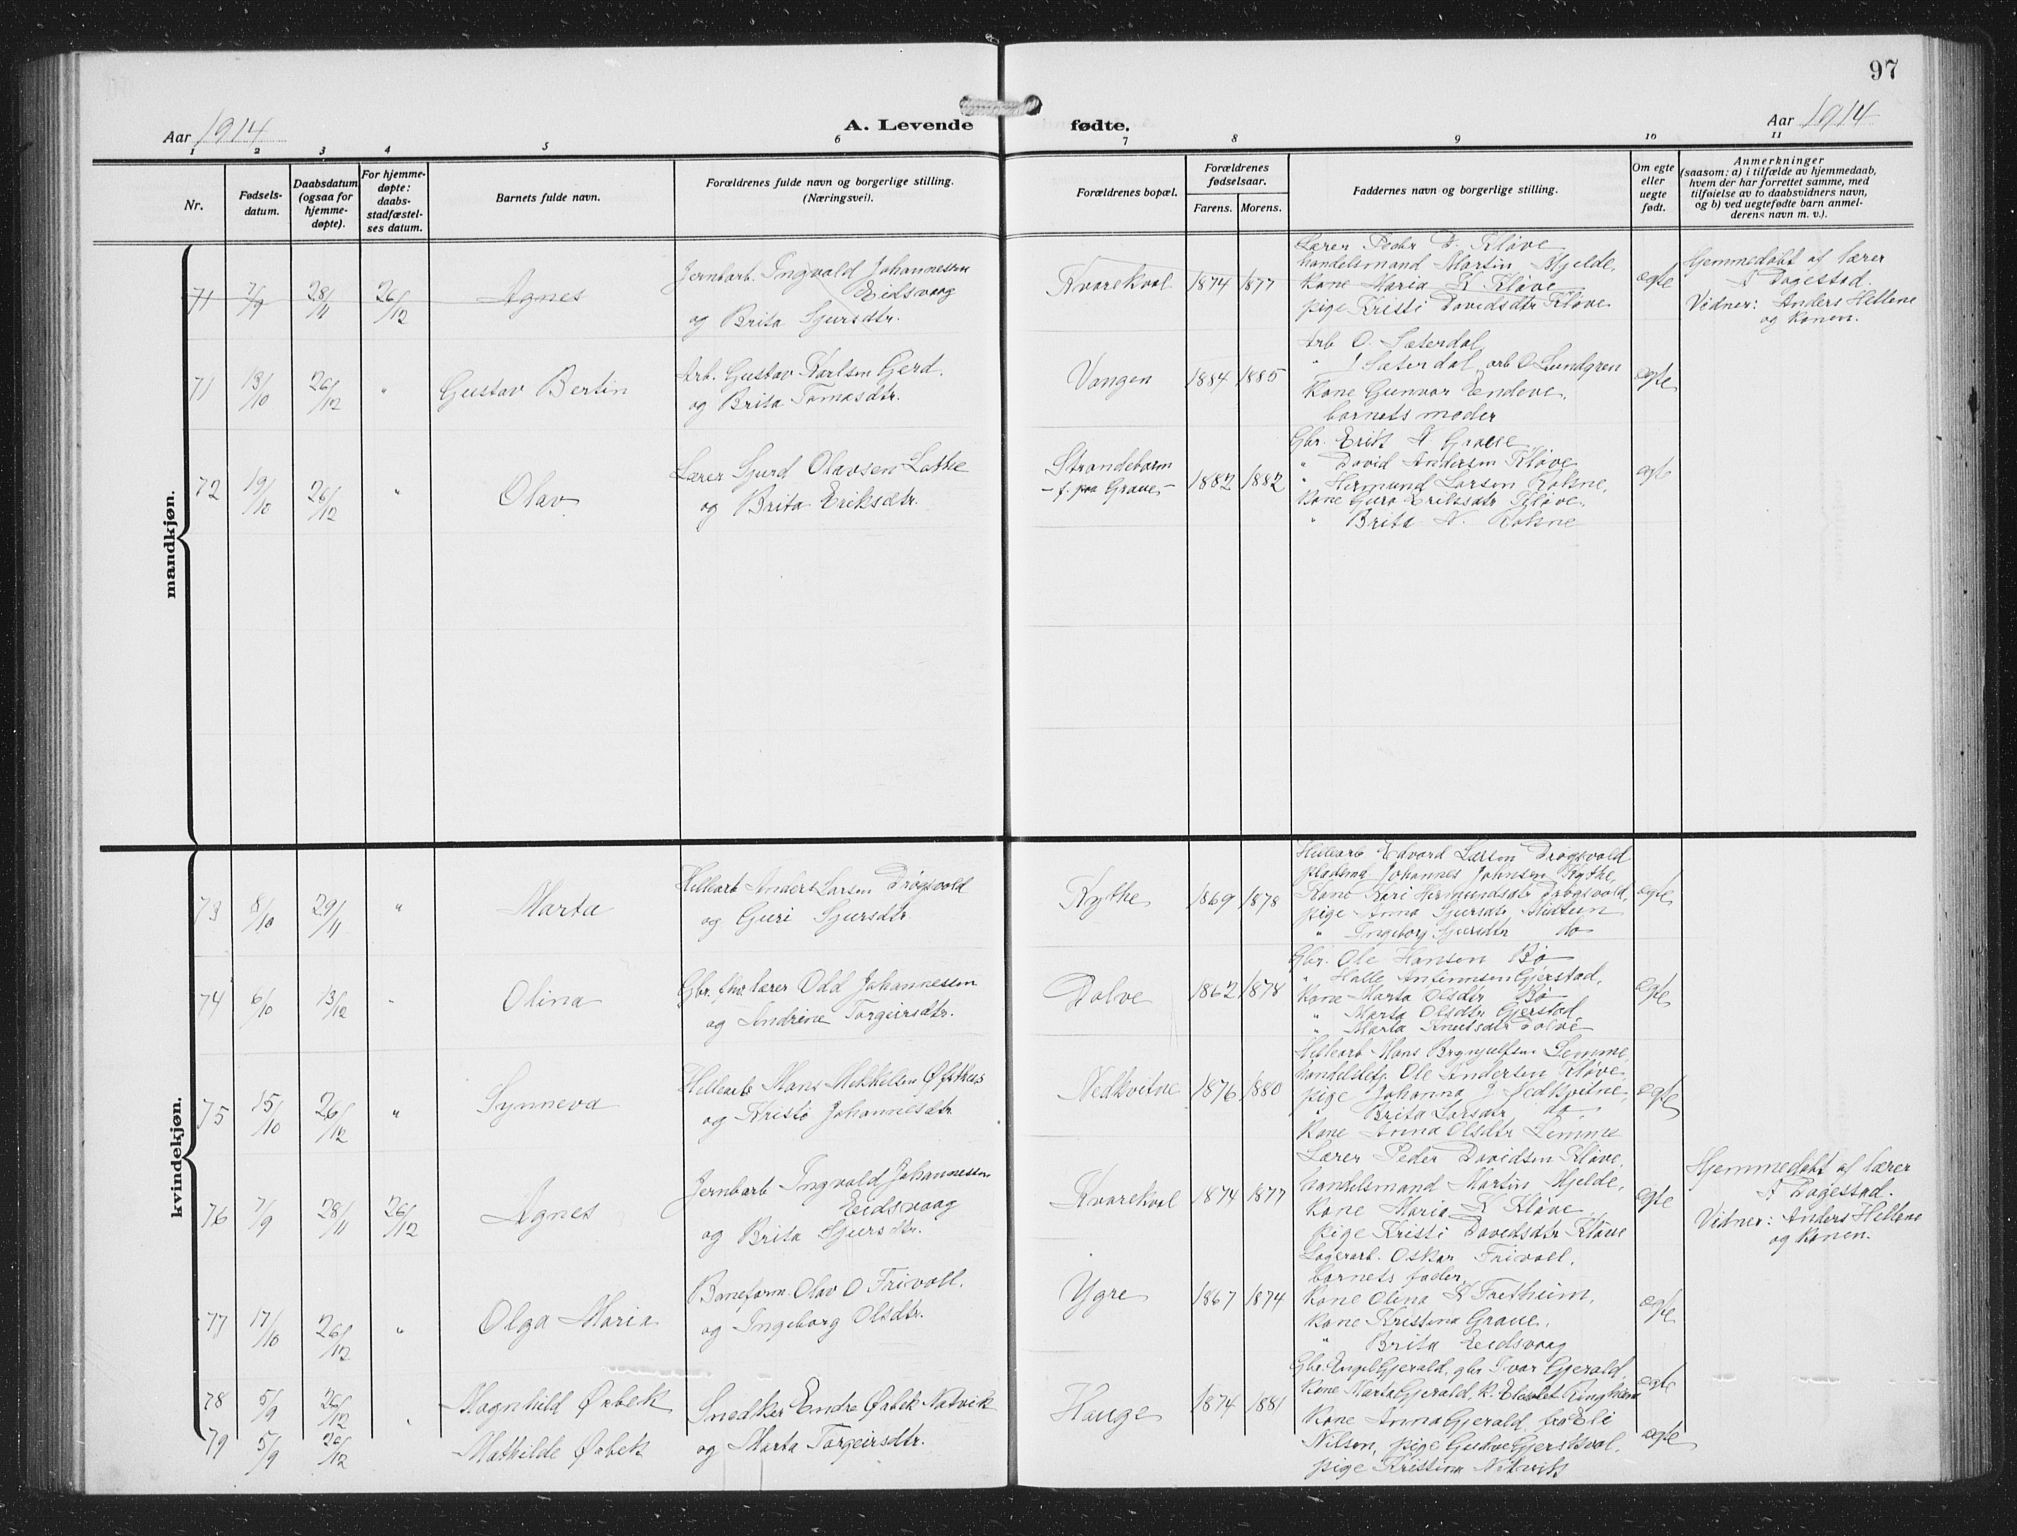 97
Aar 1914
A. Levende fødte.
Aar 1914
1 2 3 4 5 6 7 8 9 10 11
Nr.
Fødsels-
datum.
Daabsdatum
(ogsaa for
hjemme-
døpte).
For hjemme-
døpte:
daabs-
stadfæstel-
ses datum.
Barnets fulde navn.
Forældrenes fulde navn og borgerlige stilling.
(Næringsvei).
Forældrenes bopæl.
Forældrenes
fødselsaar.
Farens. Morens.
Faddernes navn og borgerlige stilling.
Om egte
eller
uegte
født.
Anmerkninger
(saasom: a) i tilfælde av hjemmedaab,
hvem der har forrettet samme, med
tilføielse av to daabsvidners navn,
og b) ved uegtefødte barn anmel-
derens navn m. v.).
mandkjøn.
71 7/9 28/11 26/12 Agnes
Jernbarb. Ingvald Johannessen
Eidsvaag
og Brita Sjursdtr.
Kvarekval 1874 1877
Lærer Peder D. Kløve
handelsmand Martin Mjelde,
Kone Maria K Kløve
pige Kristi Davidsdtr Kløve
egte
Hjemmedøbt af lærer
A Dagestad.
Vidner: Anders Hellene
og konen.
71 13/10 26/12 " Gustav Bertin
Arb. Gustav Karlsen Gjerd.
og Brita Tomasdtr.
Vangen 1884 1885
Arb O. Sæterdal
" J Sæterdal, arb O Lundgren
Kone Gunvor Endeve,
barnets moder
egte
72 19/10 26/12 " Olav
Lærer Sjurd Olavsen Lothe
og Brita Eriksdtr.
Strandebarm
- f. paa Graue - 1882 1882
Gbr. Erik N Graue
" David Andersen Kløve
" Hermund Larsen Rokne,
Kone Guro Eriksdtr Kløve,
" Brita N. Rokne
egte
kvindekjøn.
73 8/10 29/11 " Marta
Hellearb Anders Larsen Drøgsvold
og Guri Sjursdtr.
Kythe 1869 1878
Hellearb Edvard Larsen Drøgsvold
pladsmd Johannes Johnsen Kythe,
Kone Kari Hermundsdtr Drøgsvold,
pige Anna Sjursdtr Midtun
" Ingeborg Sjursdtr do
egte
74 6/10 13/12 " Olina
Gbr. fhv. lærer Odd Johannessen
og Andrine Torgeirsdtr.
Dolve 1862 1878
Gbr. Ole Hansen Bø
" Halle Gjerstad,
Kone Marta Olsdtr Bø
" Marta Olsdtr Gjerstad
" Marta Knutsdtr Dolve
egte
75 15/10 26/12 " Synneva
Hellearb Hans Mikkelsen Øfsthus
og Kristi Johannesdtr.
Nedkvitne 1876 1880
Hellearb Hans Brynjulfsen Lemme,
handelsbetj. Ole Andersen Kløve,
pige Johanna J Nedkvitne,
" Brita Larsdtr do
Kone Anna Olsdtr Lemme
egte
76 7/9 28/11 26/12 Agnes
Jernbarb Ingvald Johannessen
Eidsvaag
og Brita Sjursdtr.
Kvarekval 1874 1877
Lærer Peder Davidsen Kløve,
handelsmand Martin Mjelde,
Kone Maria K Kløve,
pige Kristi Davidsdtr Kløve
egte
Hjemmedøbt af lærer
A Dagestad.
Vidner: Anders Hellene
og konen.
77 17/10 26/12 " Olga Maria
Baneform. Olav O Frivoll.
og Ingeborg Olsdtr.
Ygre 1867 1874
Lagerarb. Oskar Frivoll,
barnets fader,
Kone Olina K Fretheim,
Kone Kristina Graue,
" Brita Eidsvaag
egte
78 5/9 26/12 " Magnhild Ørbek
79 5/9 26/12 Mathilde Ørbek
Snedker Endre Ørbek Natvik
og Marta Torgeirsdtr.
Hauge 1874 1881
Gbr. Engel Gjerald, gbr Ivar Gjerald,
Kone Marta Gjerald, k. Elisabet Ringheim
Kone Anna Gjerald, fru Eli
Nilsen, pige Gudve Gjerstsval,
pige Kristina Natvik
egte
egte